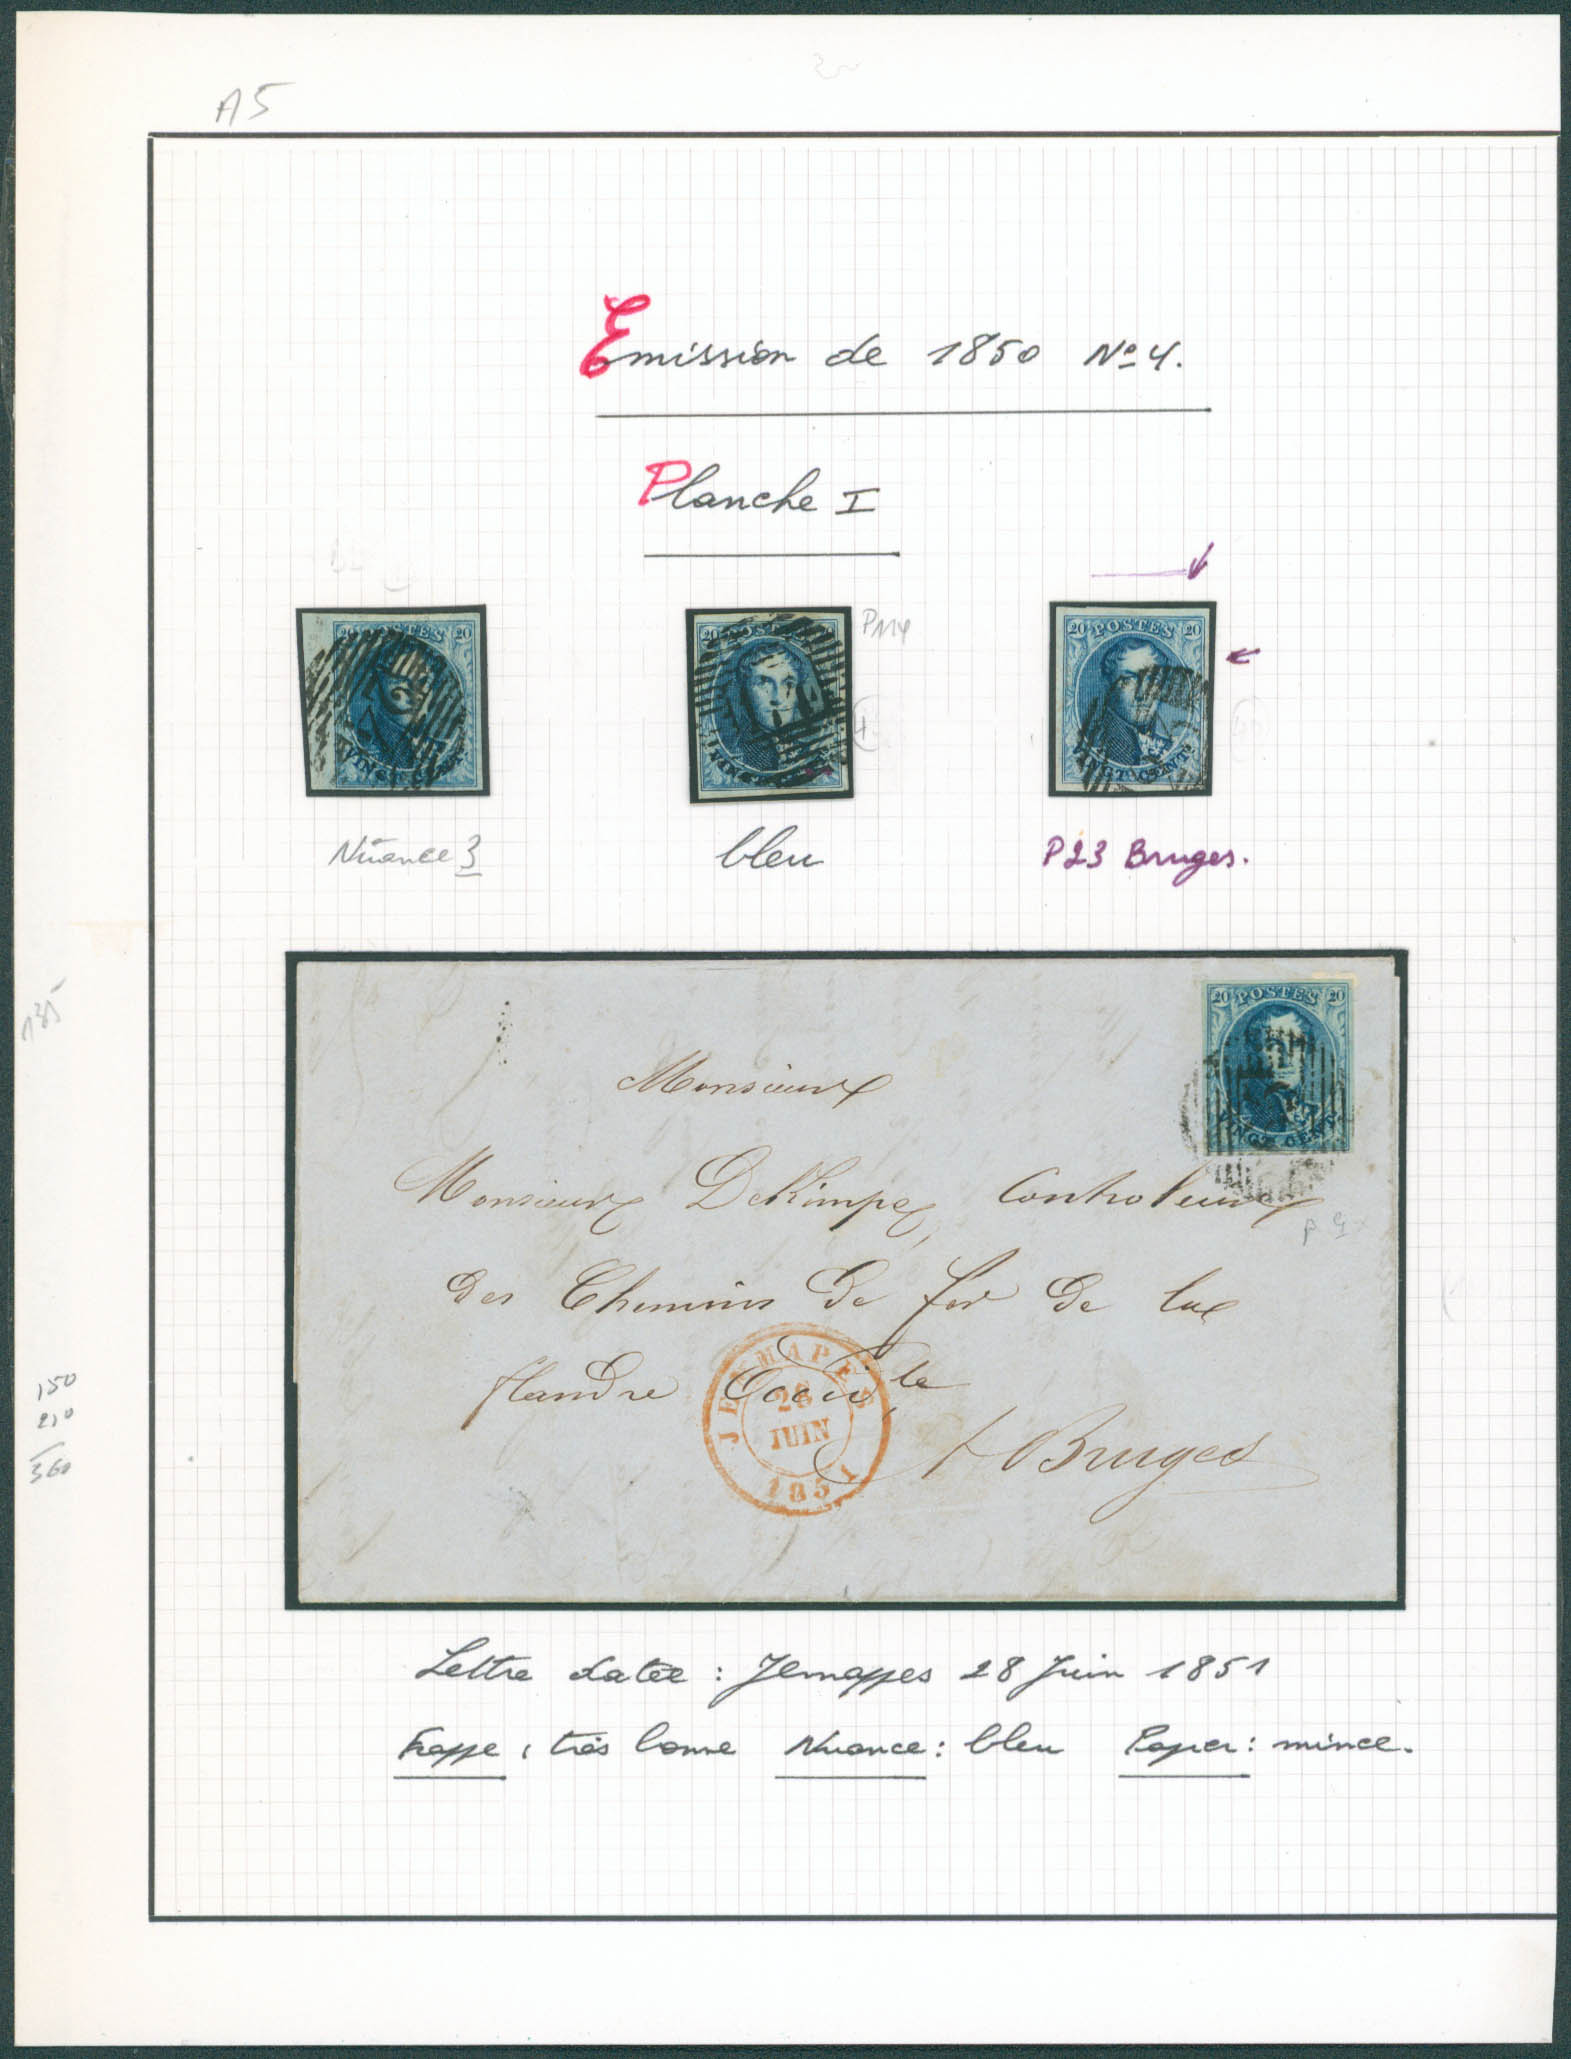 A5
Emission de 1850 No 4.
Planche I
20 POSTES 20
VINGT CENT
20 POSTES 20
20 POSTES 20
VINGT CENTS
Nuance 3
bleu
P23 Bruges.
135
20 POSTES 20
VINGT CENT.
Monsieur
Monsieur DeKimpe, Controleur
des Chemins de fer de la
flandre Occid.le
JEMMAPES
28
JUIN
1851
A Bruges
150
210
360
Lettre datée : Jemappes 28 Juin 1851
Frappe : très bonne Nuance : bleu Papier : mince.